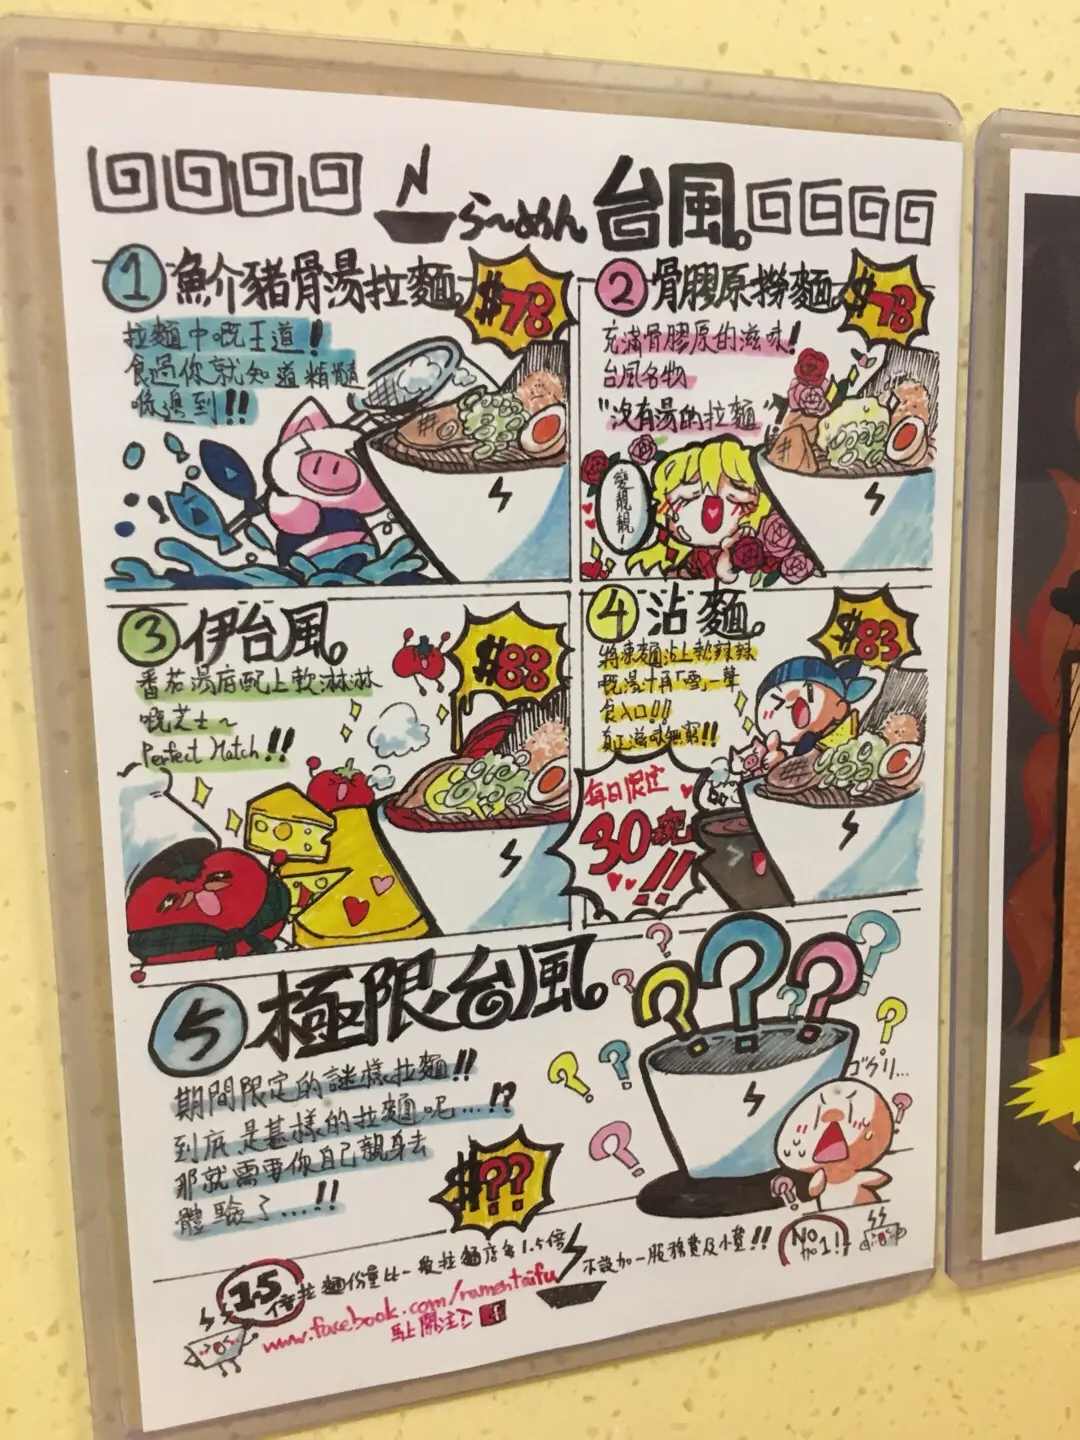 らーめん 台風。
1 魚介豬骨湯拉麵。 $78
拉麵中嘅王道!
食過你就知道精髓
喺邊到!!
2 骨膠原撈麵。 $78
充滿骨膠原的滋味!
台風名物
"沒有湯的拉麵"
變靚靚~
3 伊台風。 $88
番茄湯底配上軟淋淋
嘅芝士~
Perfect Match!!
4 沾麵。 $83
將凍麵沾上熱辣辣
嘅湯汁再「雪」一聲
食入口!!!
真正滋味無窮!!
每日限定
30碗
!!
5 極限台風。
期間限定的謎樣拉麵!!
到底是甚樣的拉麵呢...!?
那就需要你自己親身去
體驗了...!!
$??
ゴクリ...
1.5倍拉麵份量比一般拉麵店多1.5倍
不設加一服務費及小費!!
No no 1!!
www.facebook.com/ramentaifu
馬上關注